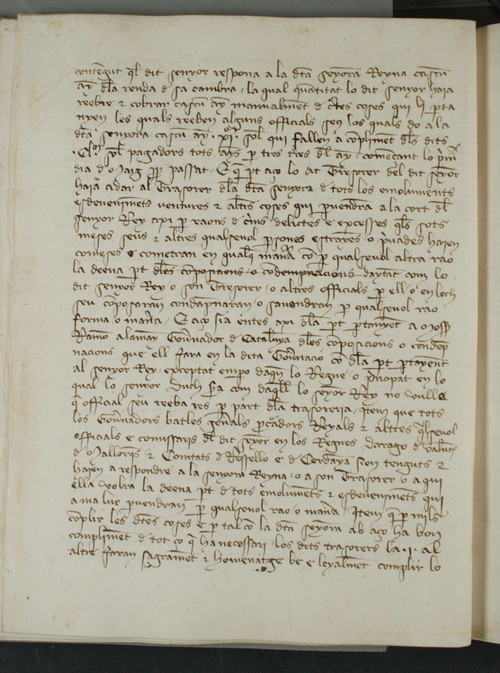 contengut q̃l dit senyor respona a la dt̃a senyora Reyna cascu
ay dl̃a renda d sa cambra, la qual quantitat lo dit senyor haja
reebre & cobrar cascu ay manualment d c̃tes coses qui hi p̃ta
nyen les quals reeben alguns officials seg los quals do a la
dt̃a senyora cascu ay sol̃ qui fallen a cõpliment dl̃s dits
sol̃ pagadors tots ays p tres tres dl̃ ay començant lo p̃m̃
dia d Maig pp̃ passat E q̃ p̃ aço lo dit Tresorer del dit seyor
haja a dar al Tresorer dl̃a dt̃a senyora d tots los emoluments
esdeveniments ventures & altr̃s coses qui pvendra a la cort dl̃
senyor Rey axi p raons d c̃ms delictes e excesses q̃ls sots
meses seus & altres qualsevol psones estranyes o privades hajen
comeses e cometran en qualq̃ maña co p qualsevol altra rao
la deena pt dles cõposicions o condempnacions daytat com lo
dit senyor Rey o son Tresorer o altres officials p ell o en loch
seu cõposaran condapnaran o sauendran p qualsevol rao
forma o maña. E aço sia entes axi dl̃a pt ptanyẽt a Mossẽ
Ramõ Alamay Gov̄nador d Catalũya dles cõposicions o condep
nacions que ell fara en la dita Gov̄nacio co dl̃a pt ptanyent
al senyor Rey, exceptat empo daquñ lo Regne o pincipat en lo
qual lo senyor Duch sera com daq̃ll lo seyor Rey no vulla
q̃ official seu reeba res p part dl̃a tresoreria, Item que tots
los Gov̄nadors batles geñals pcuradors Reyals & altres q̃lsevol
officials e comissaris dl̃ dit seyor en los Regnes Darago d Valenc̃
d Mallorq̃s & Comtats d Rossello & d Cerdaya sien tenguts &
hajen a respondre a la senyora Reyna o a son Tresorer o a qui
ella volra la deena pt d tots emolumẽts & esdevenimẽts qui
a ma lur puendran p qualsevol rao o maña. Item q̃ p mils
cõplir les dt̃es coses e p tal co la dt̃a seyora ab aço ha bon
compliment d tot ço q̃ ha necessari los dits tresorers la .j. al
altre faran sagrament & homenatge be e leyalment complir lo